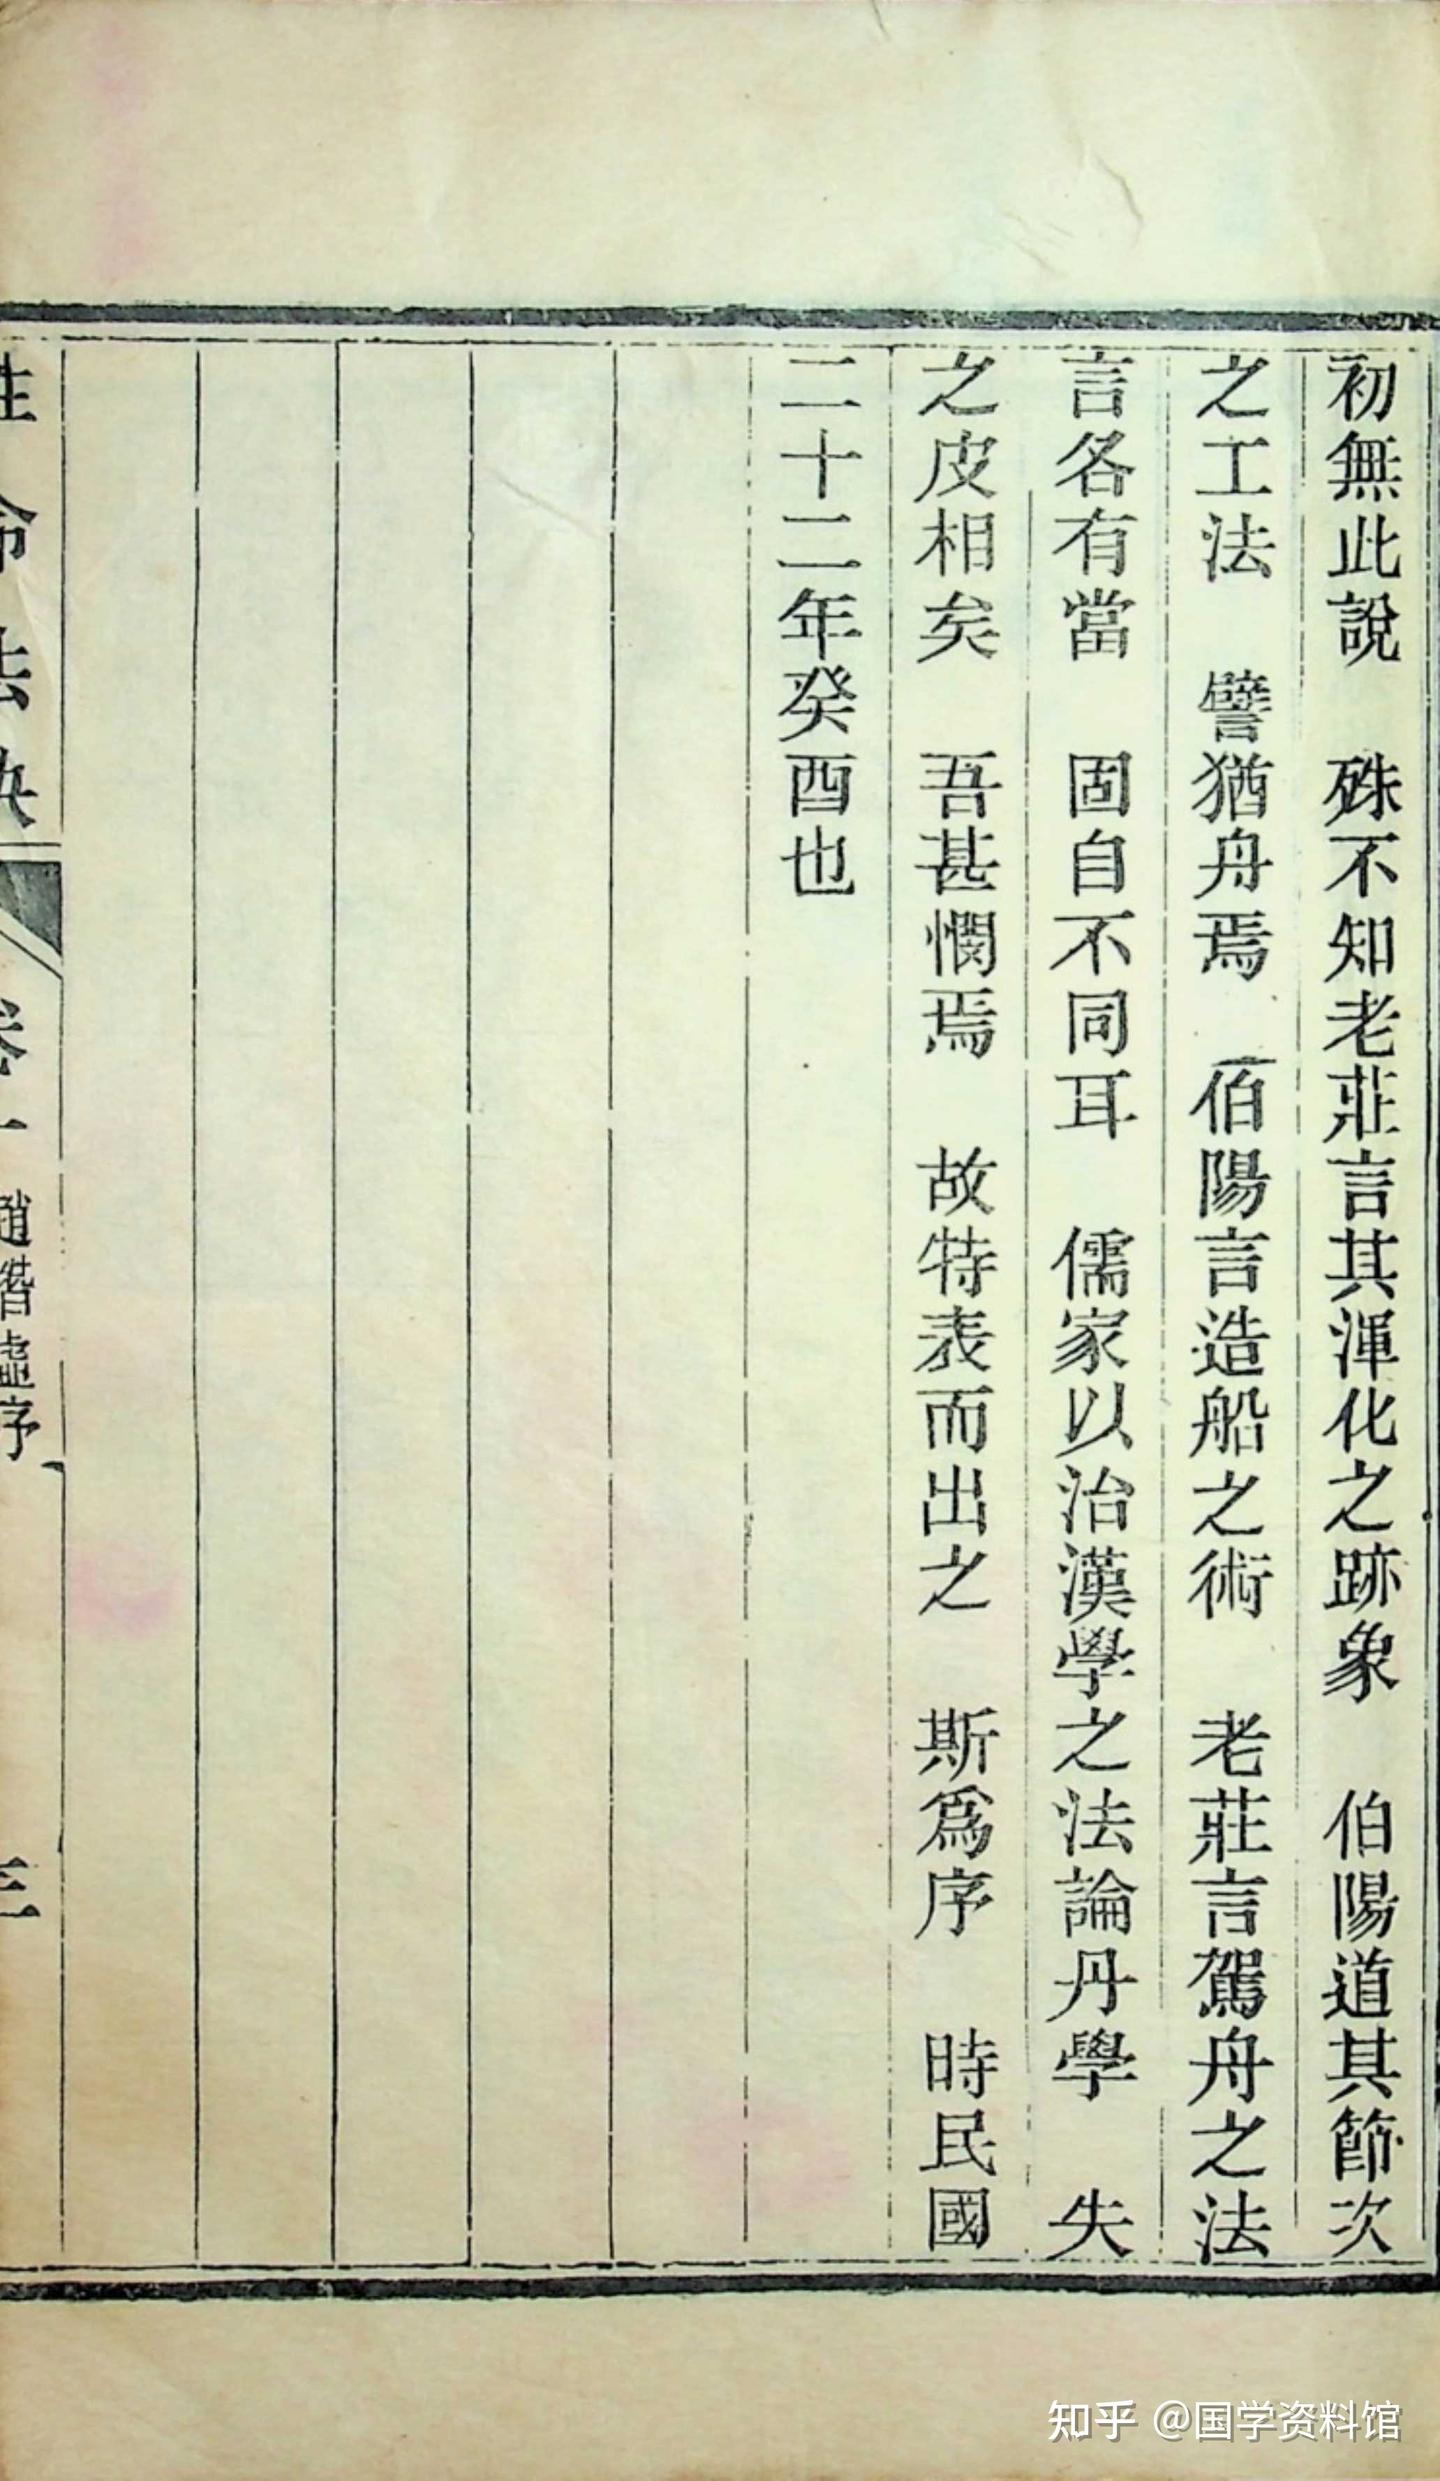 初無此說　殊不知老莊言其渾化之跡象　伯陽道其節次
之工法　譬猶舟焉　伯陽言造船之術　老莊言駕舟之法
言各有當　固自不同耳　儒家以治漢學之法論丹學　失
之皮相矣　吾甚憫焉　故特表而出之　斯爲序　時民國
二十二年癸酉也
性命法訣　卷一　趙避虛序　三
知乎 @国学资料馆